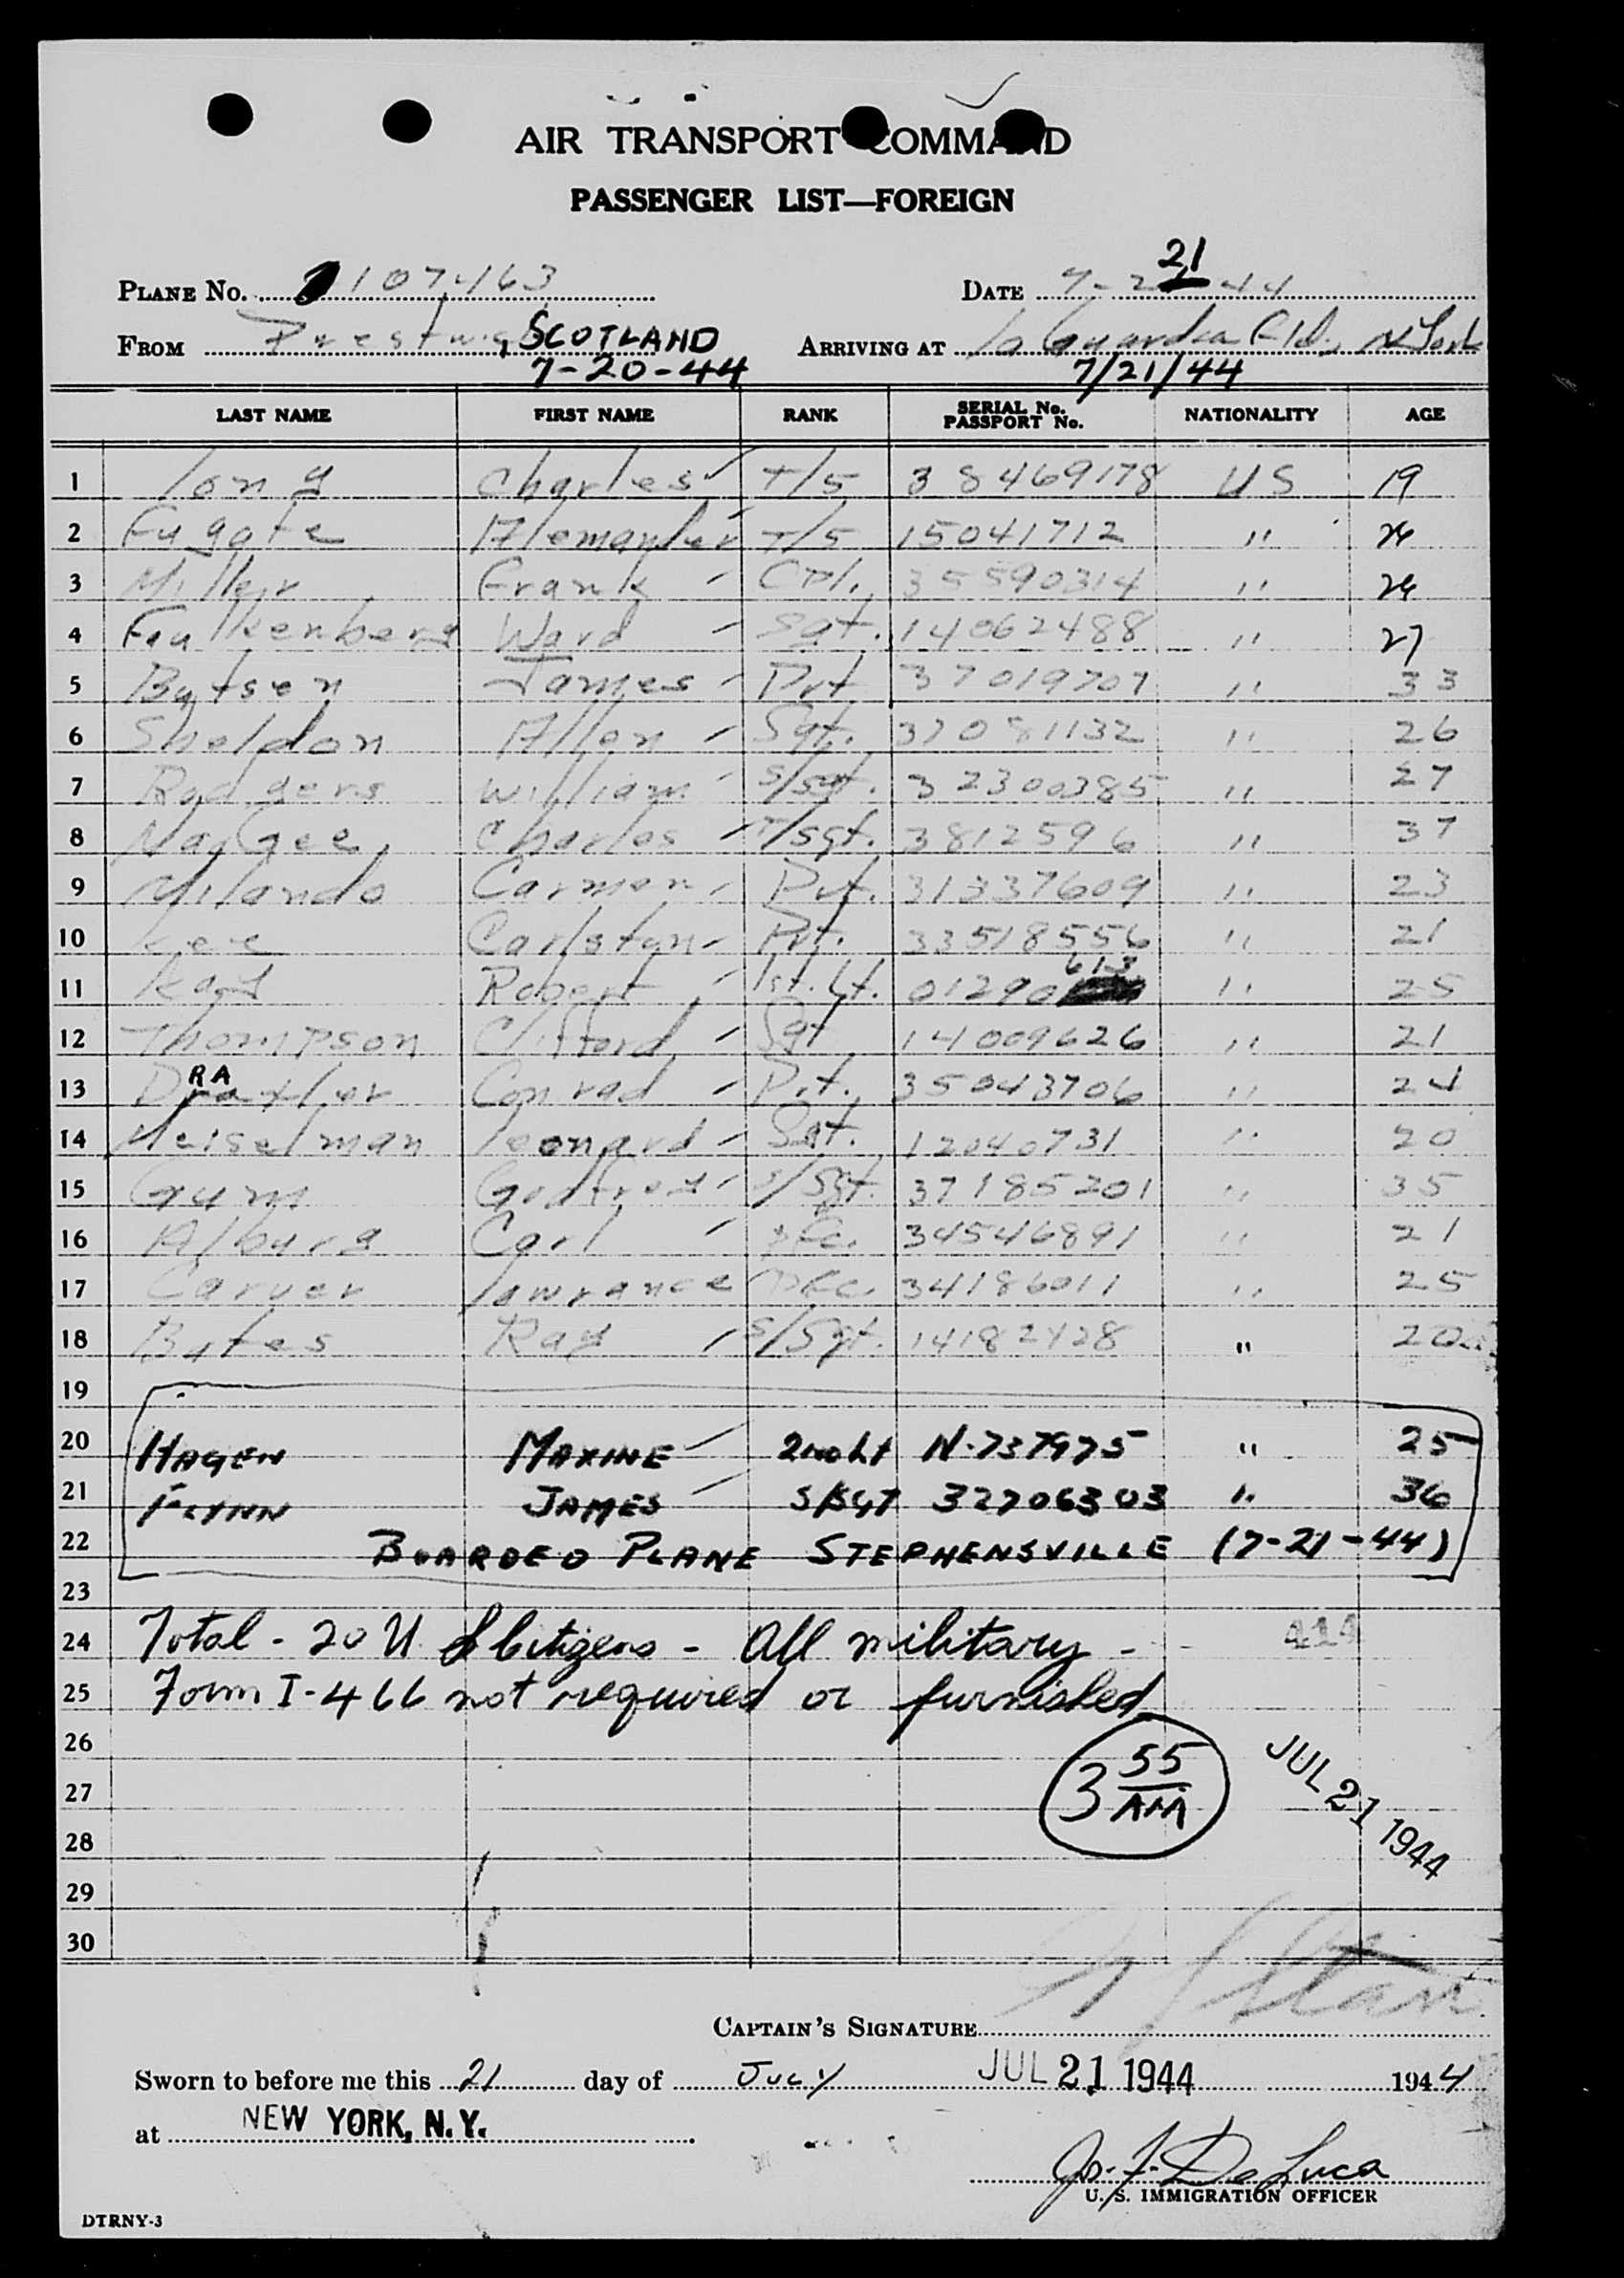 AIR TRANSPORT COMMAND
PASSENGER LIST—FOREIGN
21
PLANE No. 107463 DATE 7-21-44
FROM Prestwick, SCOTLAND ARRIVING AT La Guardia Fld., N York
7-20-44 7/21/44
LAST NAME FIRST NAME RANK SERIAL No. PASSPORT No. NATIONALITY AGE
1 Long Charles T/5 38469178 US 19
2 Fugate Alemander T/5 15041712 " 26
3 Miller Frank Cpl. 35590314 " 26
4 Faulkenberg Ward Sgt. 14062488 " 27
5 Batsen James Pvt 37019707 " 33
6 Sheldon Allen Sgt. 37081132 " 26
7 Rodgers William S/Sgt. 32300385 " 27
8 MacGee Charles T/Sgt. 3812596 " 37
9 Milando Carmen Pvt. 31337609 " 23
10 Lee Carlstyn Pvt. 33518556 " 21
11 Kay Robert 1st. Lt. 01290 613 " 25
12 Thompson Clifford Sgt 14009626 " 21
13 Draxler RA Conrad Pvt. 35043706 " 24
14 Meiselman Leonard Sgt. 12040731 " 20
15 Gum Godfrey S/Sgt. 37185201 " 35
16 Alburg Carl Pfc. 34546891 " 21
17 Carver Lawrance Pfc. 34186011 " 25
18 Bates Ray S/Sgt. 14182428 " 20
19
20 HAGEN MAXINE 2nd Lt N-737975 " 25
21 FLYNN JAMES S/SGT 32706303 " 36
22 BOARDED PLANE STEPHENSVILLE (7-21-44)
23
24 Total - 20 U S Citizens - All military - 414
25 Form I-466 not required or furnished
26
27 3 55 AM JUL 21 1944
28
29
30
CAPTAIN'S SIGNATURE
Sworn to before me this 21 day of July JUL 21 1944 1944
at NEW YORK, N.Y.
Jos. F. De Luca
U. S. IMMIGRATION OFFICER
DTRNY-3